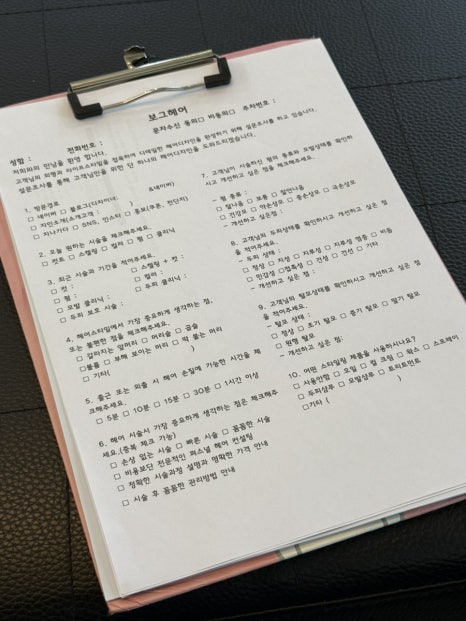 보그헤어
문자수신 동의□ 비동의□ 주차번호 :
성함 : 전화번호 :
저희와의 만남을 환영 합니다.
고객님의 외형과 라이프스타일을 접목하여 디테일한 헤어디자인을 완성하기 위해 설문조사를 하고 있습니다.
설문조사를 통해 고객님만을 위한 단 하나의 헤어디자인을 도와드리겠습니다.
1. 방문경로
□ 네이버 □ 블로그(디자이너: &네이버)
□ 지인소개(소개고객 : )
□ 지나가다 □ SNS, 인스타 □ 홍보(쿠폰, 전단지)
2. 오늘 원하는 시술을 체크해주세요.
□ 커트 □ 스켈링 □ 컬러 □ 펌 □ 클리닉
3. 최근 시술과 기간을 적어주세요.
□ 컷 : □ 스켈링 + 컷 :
□ 펌 : □ 컬러 :
□ 모발 클리닉 : □ 두피 클리닉 :
□ 두피 보호 시술 :
4. 헤어스타일에서 가장 중요하게 생각하는 점,
또는 불편한 점을 체크해주세요.
□ 갈라지는 앞머리 □ 머리숱 □ 곱슬
□볼륨 □ 부해 보이는 머리 □ 딱 붙는 머리
□ 기타( )
5. 출근 또는 외출 시 헤어 손질에 가능한 시간을 체
크해주세요.
□ 5분 □ 10분 □ 15분 □ 30분 □ 1시간 이상
6. 헤어 시술시 가장 중요하게 생각하는 점은 체크해주
세요.(중복 체크 가능)
□ 손상 없는 시술 □ 빠른 시술 □ 꼼꼼한 시술
□ 비용보단 전문적인 퍼스널 헤어 컨설팅
□ 정확한 시술과정 설명과 명확한 가격 안내
□ 시술 후 꼼꼼한 관리방법 안내
7. 고객님이 시술하신 펌의 종류와 모발상태를 확인하
시고 개선하고 싶은 점을 체크해주세요.
- 펌 종류 :
□ 잘나옴 □ 보통 □ 잘안나옴
□ 건강모 □ 약손상모 □ 중손상모 □ 극손상모
- 개선하고 싶은점 :
8. 고객님의 두피상태를 확인하시고 개선하고 싶은 점
을 적어주세요.
- 두피 상태 :
□ 정상 □ 지성 □ 지루성 □ 지루성 염증 □ 비듬
□ 민감성 □접촉성 □ 건성 □ 건선 □ 기타
- 개선하고 싶은 점 :
9. 고객님의 탈모상태를 확인하시고 개선하고 싶은 점
을 적어주세요.
- 탈모 상태 :
□ 정상 □ 초기 탈모 □ 중기 탈모 □ 말기 탈모
□ 원형 탈모
- 개선하고 싶은 점:
10. 어떤 스타일링 제품을 사용하시나요?
□ 사용안함 □ 오일 □ 컬 크림 □ 왁스 □ 스프레이
□ 두피샴푸 □ 모발샴푸 □ 트리트먼트
□기타 ( )